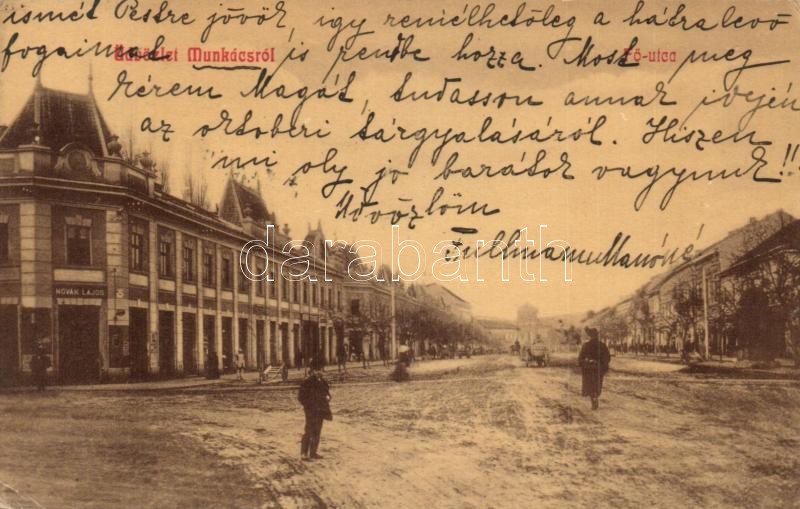 ismét Pestre jövök, így remélhetőleg a hátralevő
fogaimat is rendbe hozza. Most meg
Üdvözlet Munkácsról
Fő-utca
kérem Magát, tudasson annak idején
az oktoberi tárgyalásáról. Hiszen
mi oly jo barátok vagyunk!!
Üdvözlöm
NOVÁK LAJOS
darabanth.com